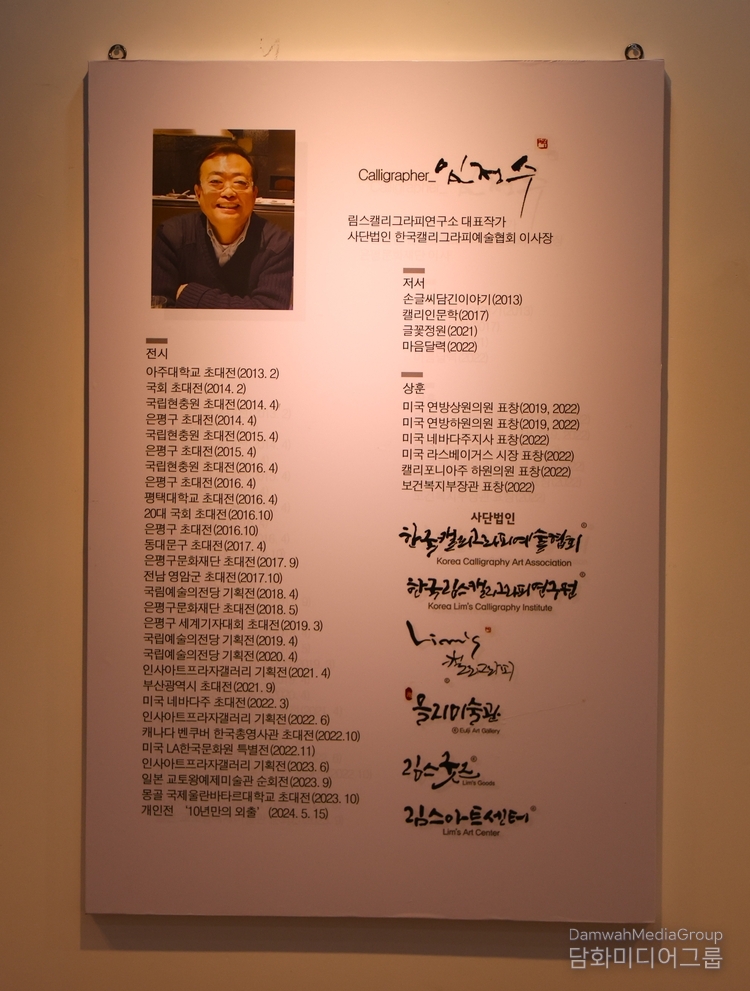 Calligrapher_임정수
림스캘리그라피연구소 대표작가
사단법인 한국캘리그라피예술협회 이사장
저서
손글씨담긴이야기(2013)
캘리인문학(2017)
글꽃정원(2021)
마음달력(2022)
전시
아주대학교 초대전(2013. 2)
국회 초대전(2014. 2)
국립현충원 초대전(2014. 4)
은평구 초대전(2014. 4)
국립현충원 초대전(2015. 4)
은평구 초대전(2015. 4)
국립현충원 초대전(2016. 4)
은평구 초대전(2016. 4)
평택대학교 초대전(2016. 4)
20대 국회 초대전(2016.10)
은평구 초대전(2016.10)
동대문구 초대전(2017. 4)
은평구문화재단 초대전(2017. 9)
전남 영암군 초대전(2017.10)
국립예술의전당 기획전(2018. 4)
은평구문화재단 초대전(2018. 5)
은평구 세계기자대회 초대전(2019. 3)
국립예술의전당 기획전(2019. 4)
국립예술의전당 기획전(2020. 4)
인사아트프라자갤러리 기획전(2021. 4)
부산광역시 초대전(2021. 9)
미국 네바다주 초대전(2022. 3)
인사아트프라자갤러리 기획전(2022. 6)
캐나다 벤쿠버 한국총영사관 초대전(2022.10)
미국 LA한국문화원 특별전(2022.11)
인사아트프라자갤러리 기획전(2023. 6)
일본 교토왕예제미술관 순회전(2023. 9)
몽골 국제울란바타르대학교 초대전(2023. 10)
개인전 ‘10년만의 외출’ (2024. 5. 15)
상훈
미국 연방상원의원 표창(2019, 2022)
미국 연방하원의원 표창(2019, 2022)
미국 네바다주지사 표창(2022)
미국 라스베이거스 시장 표창(2022)
캘리포니아주 하원의원 표창(2022)
보건복지부장관 표창(2022)
사단법인
한국캘리그라피예술협회
Korea Calligraphy Art Association
한국림스캘리그라피연구원
Korea Lim's Calligraphy Institute
Lim's
캘리그라피
올리미술관
Art Gallery
림스굿즈
Lim's Goods
림스아트센터
Lim's Art Center
DamwahMediaGroup
담화미디어그룹